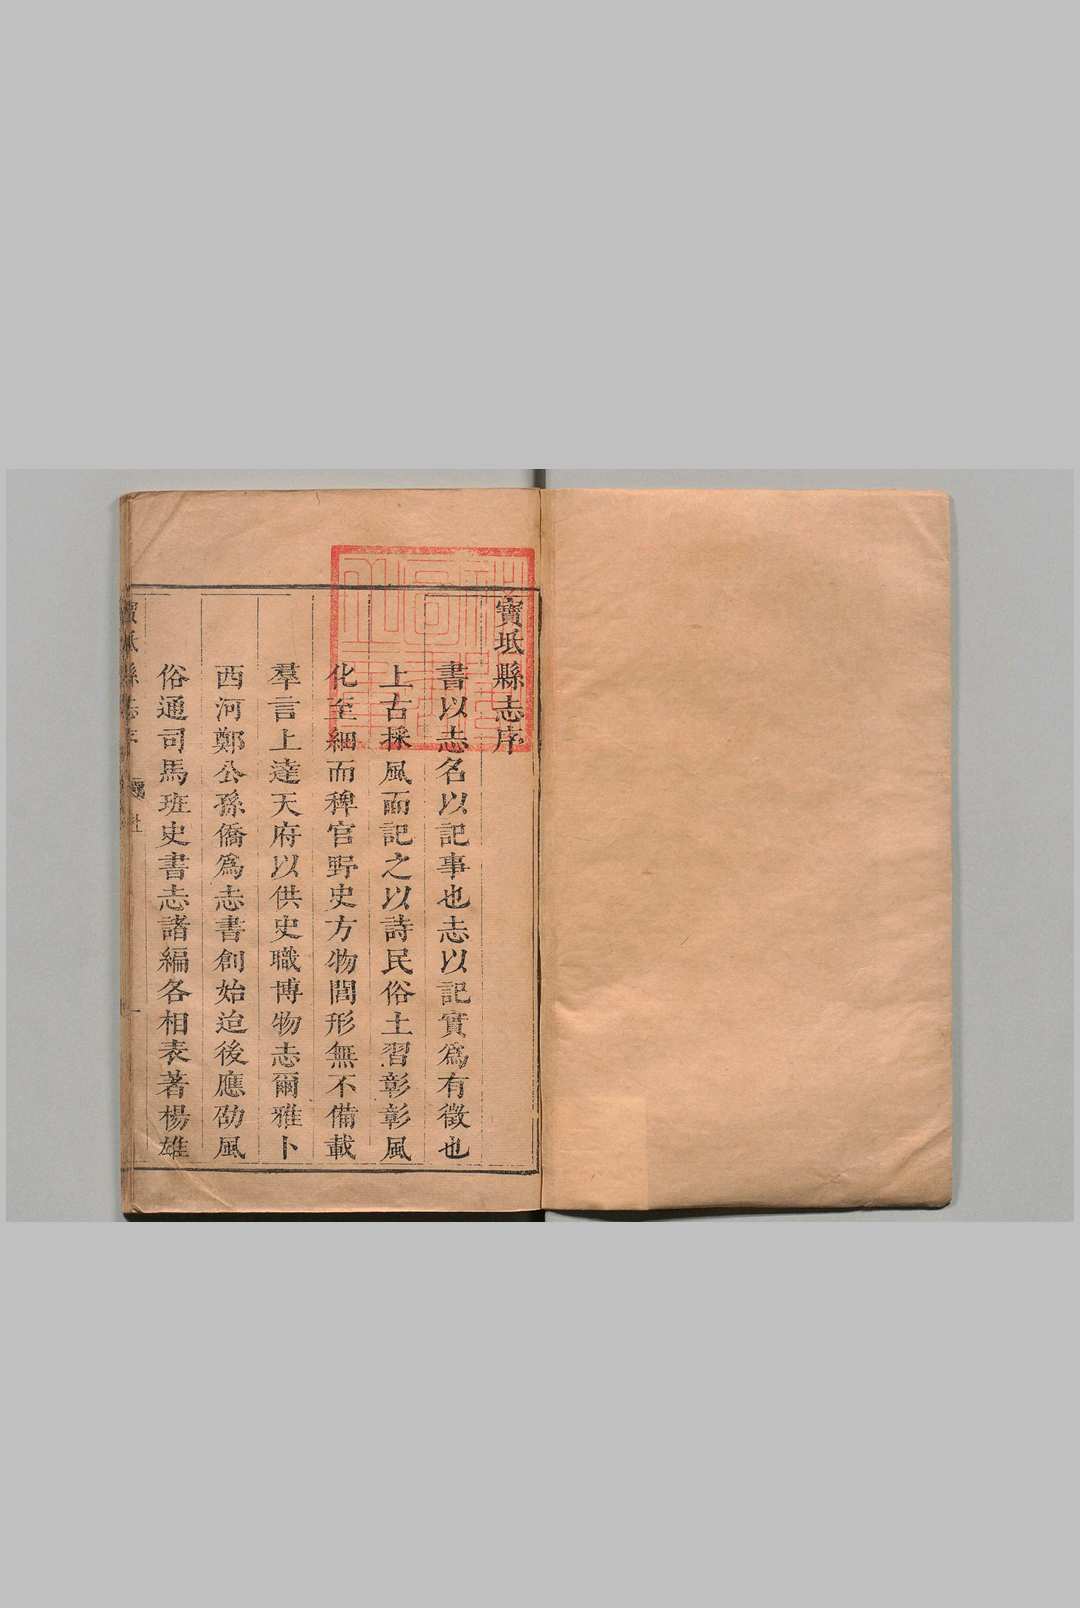 寶坻縣志序
書以志名以記事也志以記實爲有徵也
上古採風而記之以詩民俗土習彰彰風
化至細而稗官野史方物閭形無不備載
羣言上達天府以供史職博物志爾雅卜
西河鄭公孫僑爲志書創始迨後應劭風
俗通司馬班史書志諸編各相表著楊雄
寶坻縣志序